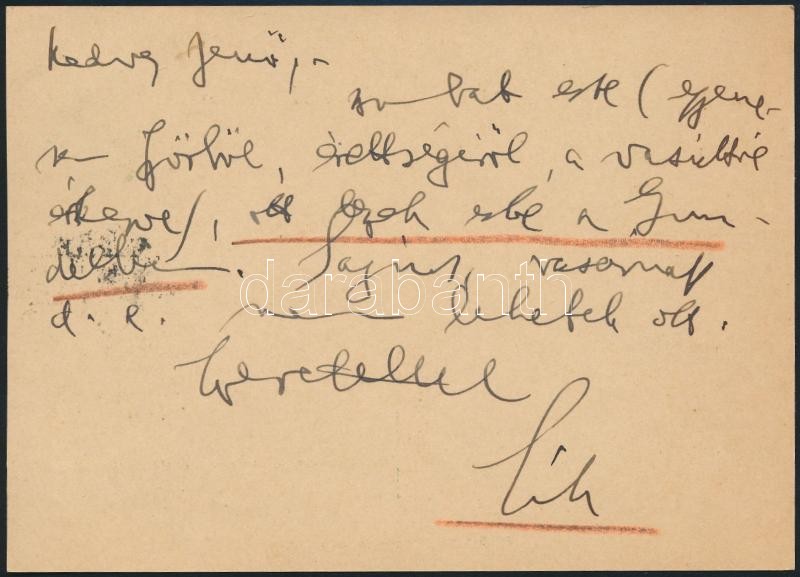 Kedves Jenő,-
szombat este (egyene-
sen Győrből, érettségiről, a vasúttól
érkezve), ott leszek este a Gun-
delben. Sajnos, vasárnap
d. e. nem lehetek ott.
Szeretettel
Sík
darabanth